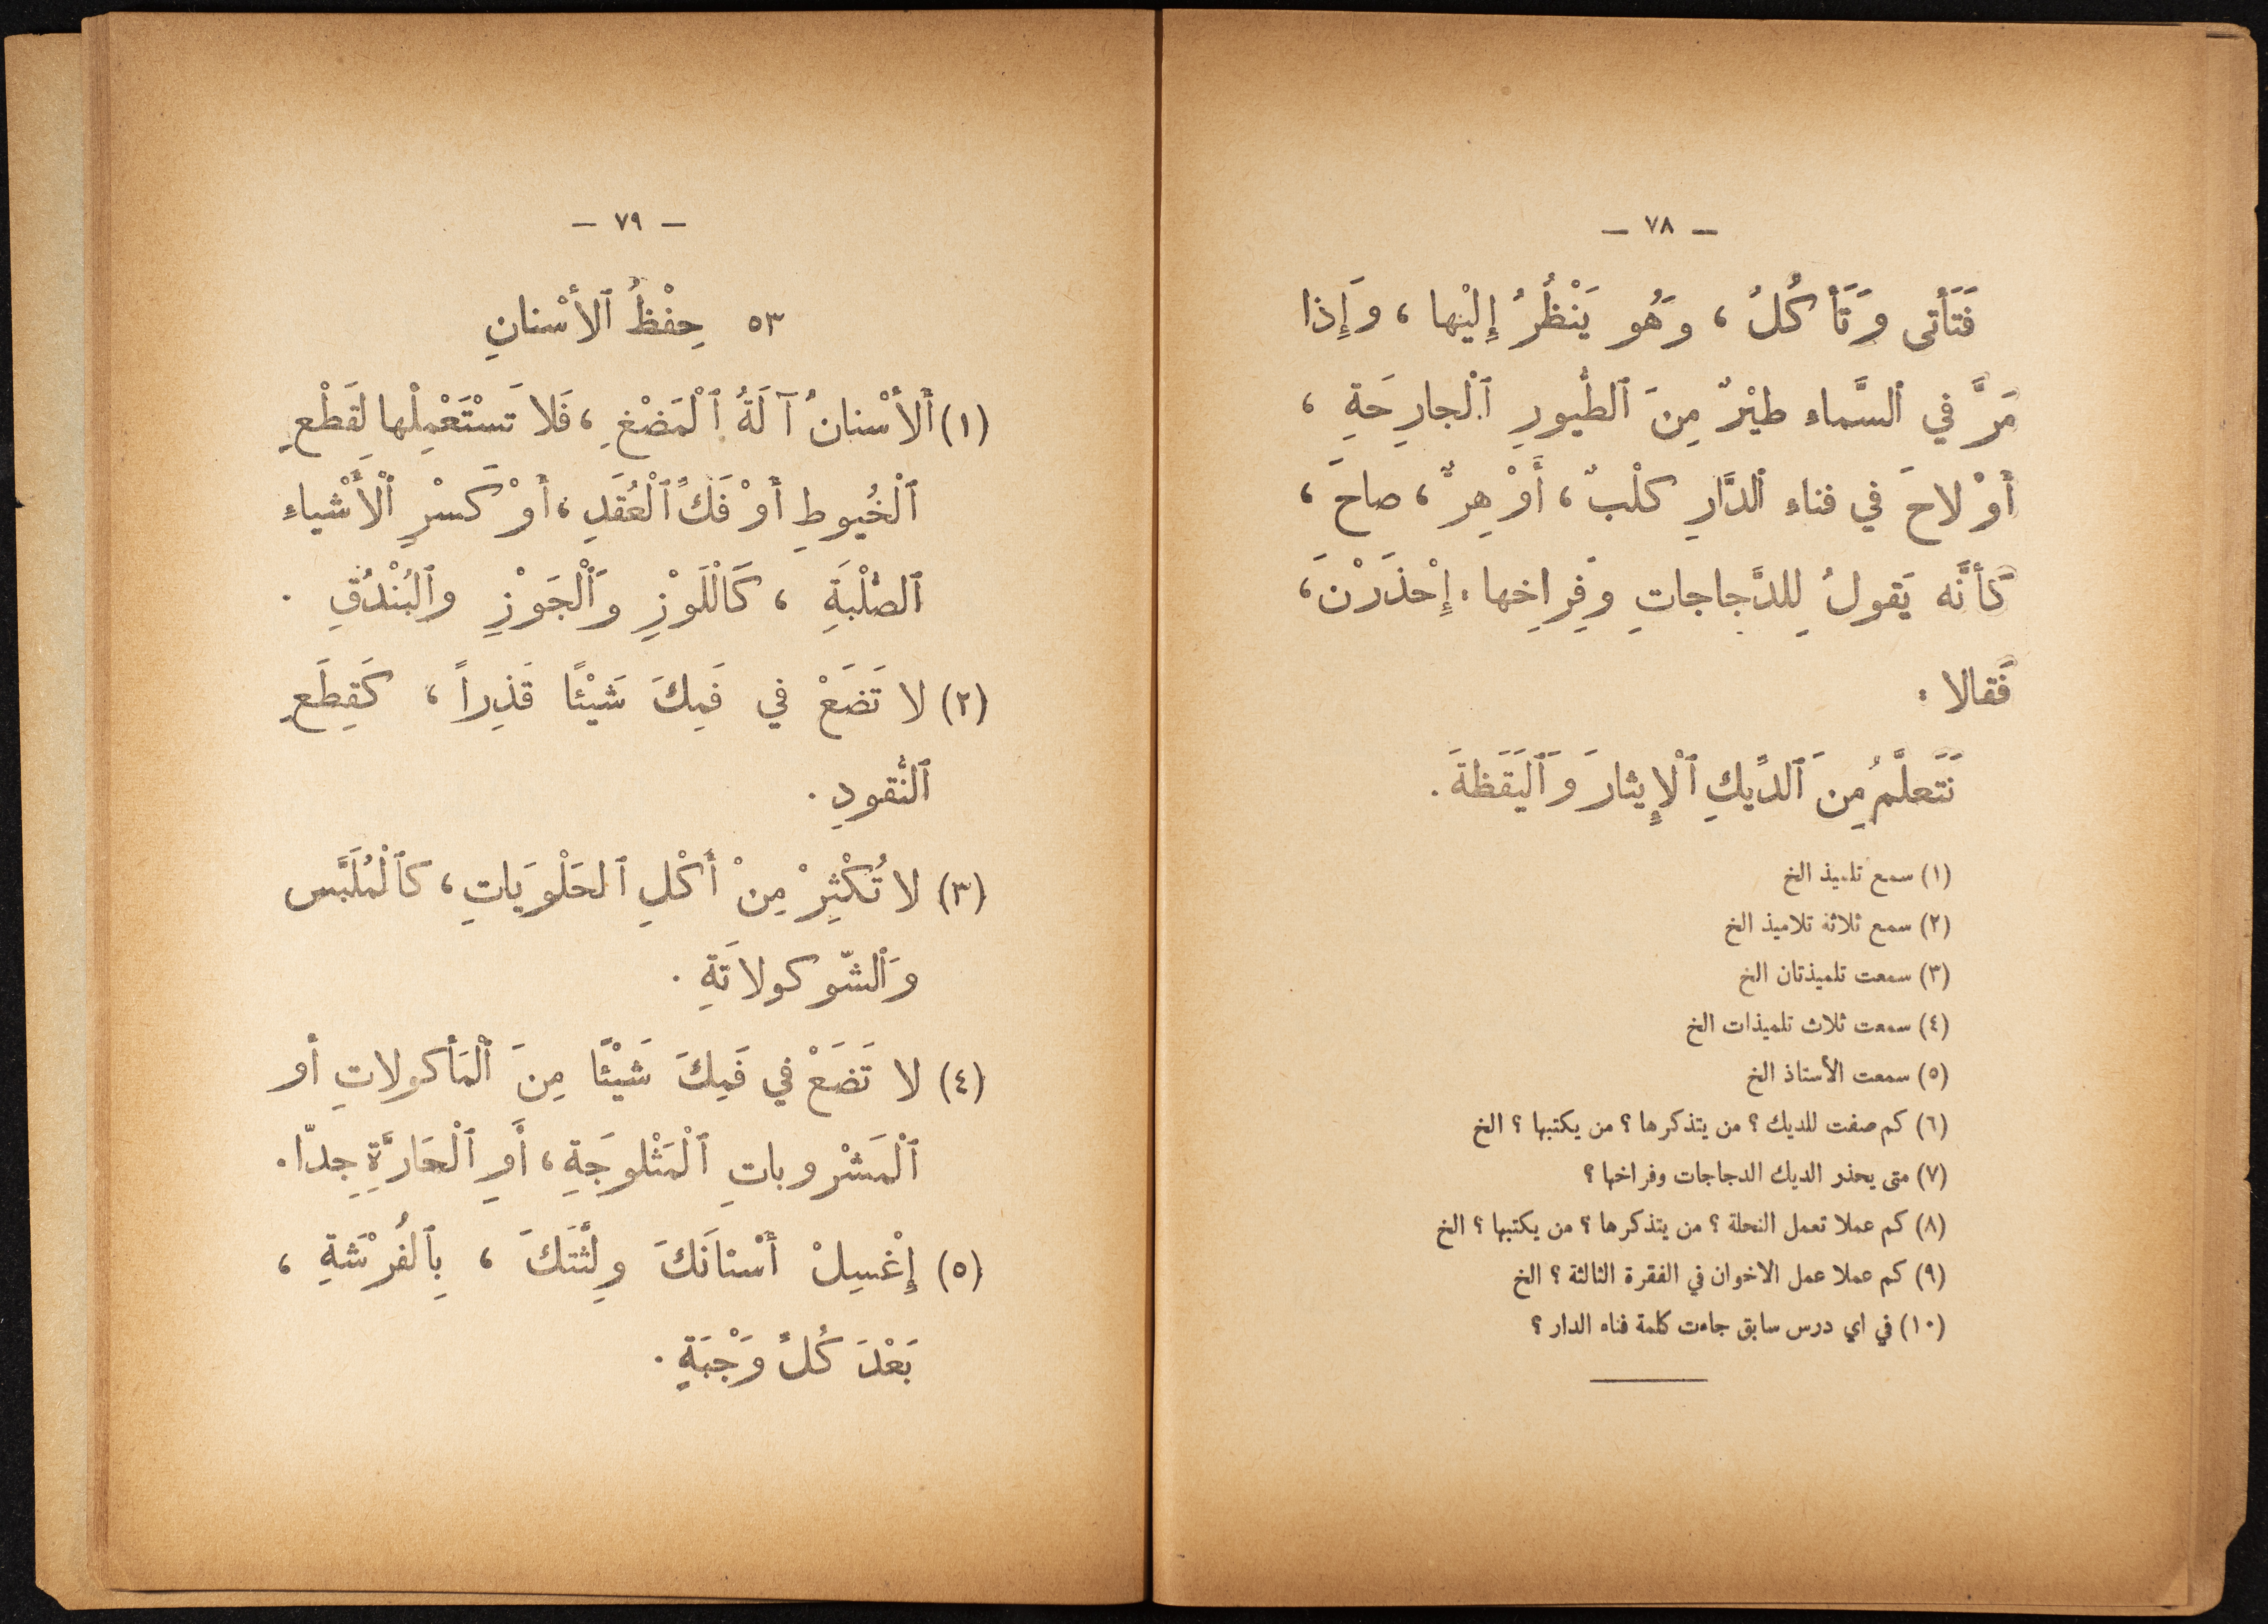 — ٧٨ —
فَتَأْتى وَتَأْكُلُ ، وَهُو يَنْظُرُ إِلَيْها ، وَإِذا
مَرَّ في ٱلسَّماء طيْرٌ مِنَ ٱلطُّيورِ ٱلْجارِحَةِ ،
أَوْ لاحَ في فناء ٱلدَّارِ كلْبٌ ، أَوْ هِرٌّ ، صاحَ ،
كأنَّه يَقولُ لِلدَّجاجاتِ وَفِراخِها : إِحْذَرْنَ ،
فَقالا :
نَتَعلَّمُ مِنَ ٱلدِّيكِ ٱلْإِيثارَ وَٱليَقَظَةَ .
(١) سمع تلميذ الخ
(٢) سمع ثلاثة تلاميذ الخ
(٣) سمعت تلميذتان الخ
(٤) سمعت ثلاث تلميذات الخ
(٥) سمعت الأستاذ الخ
(٦) كم صفت للديك ؟ من يتذكرها ؟ من يكتبها ؟ الخ
(٧) متى يحذر الديك الدجاجات وفراخها ؟
(٨) كم عملا تعمل النحلة ؟ من يتذكرها ؟ من يكتبها ؟ الخ
(٩) كم عملا عمل الاخوان في الفقرة الثالثة ؟ الخ
(١٠) في اي درس سابق جاءت كلمة فناء الدار ؟
— ٧٩ —
٥٣ حِفْظُ ٱلأسْنانِ
(١) أَلأسْنانُ آلَةُ ٱلْمَضْغِ ، فَلا تَسْتَعْمِلْها لِقَطْعِ
ٱلْخُيوطِ أَوْ فَكِّ ٱلْعُقَدِ ، أَوْ كَسْرِ ٱلْأَشْياءِ
ٱلصُّلْبَةِ ، كَٱلْلَوْزِ وَٱلْجَوْزِ وٱلبُنْدُقِ .
(٢) لا تَضَعْ في فَمِكَ شَيْئًا قَذِراً ، كَقِطَعِ
ٱلنُّقودِ .
(٣) لا تُكْثِرْ مِنْ أَكْلِ ٱلحَلْوَيَاتِ ، كٱلْمُلَبَّس
وَٱلشّوكولاتَةِ .
(٤) لا تَضَعْ في فَمِكَ شَيْئًا مِنَ ٱلْمَأكولاتِ أو
ٱلْمَشْروباتِ ٱلْمَثْلوجَةِ ، أَوِ ٱلْحَارَّةِ جِدّا .
(٥) إِغْسِلْ أَسْنَانَكَ ولِثَتَكَ ، بِٱلفُرْشَةِ ،
بَعْدَ كُلِّ وَجْبَةٍ .